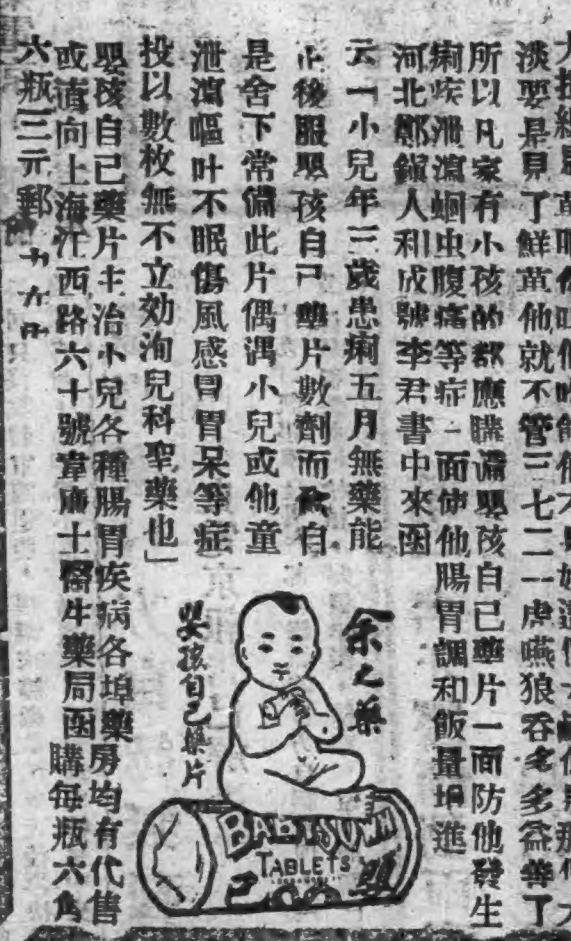 淡要是見了鮮菓他就不管三七二一虎嚥狼吞多多益善了
所以凡家有小孩的都應購備嬰孩自己藥片一面防他發生
痢疾泄瀉蛔虫腹痛等症一面使他腸胃調和飯量增進
河北鄭鎮人和成號李君書中來函
云「小兒年三歲患痢五月無藥能
止後服嬰孩自己藥片數劑而痊自
是舍下常備此片偶遇小兒或他童
泄瀉嘔吐不眠傷風感冒胃呆等症
投以數枚無不立効洵兒科聖藥也」
嬰孩自己藥片主治小兒各種腸胃疾病各埠藥房均有代售
或直向上海江西路六十號韋廉士醫生藥局函購每瓶六角
六瓶三元郵
余之藥
嬰孩自己藥片
BABY'S OWN
TABLETS
嬰
己